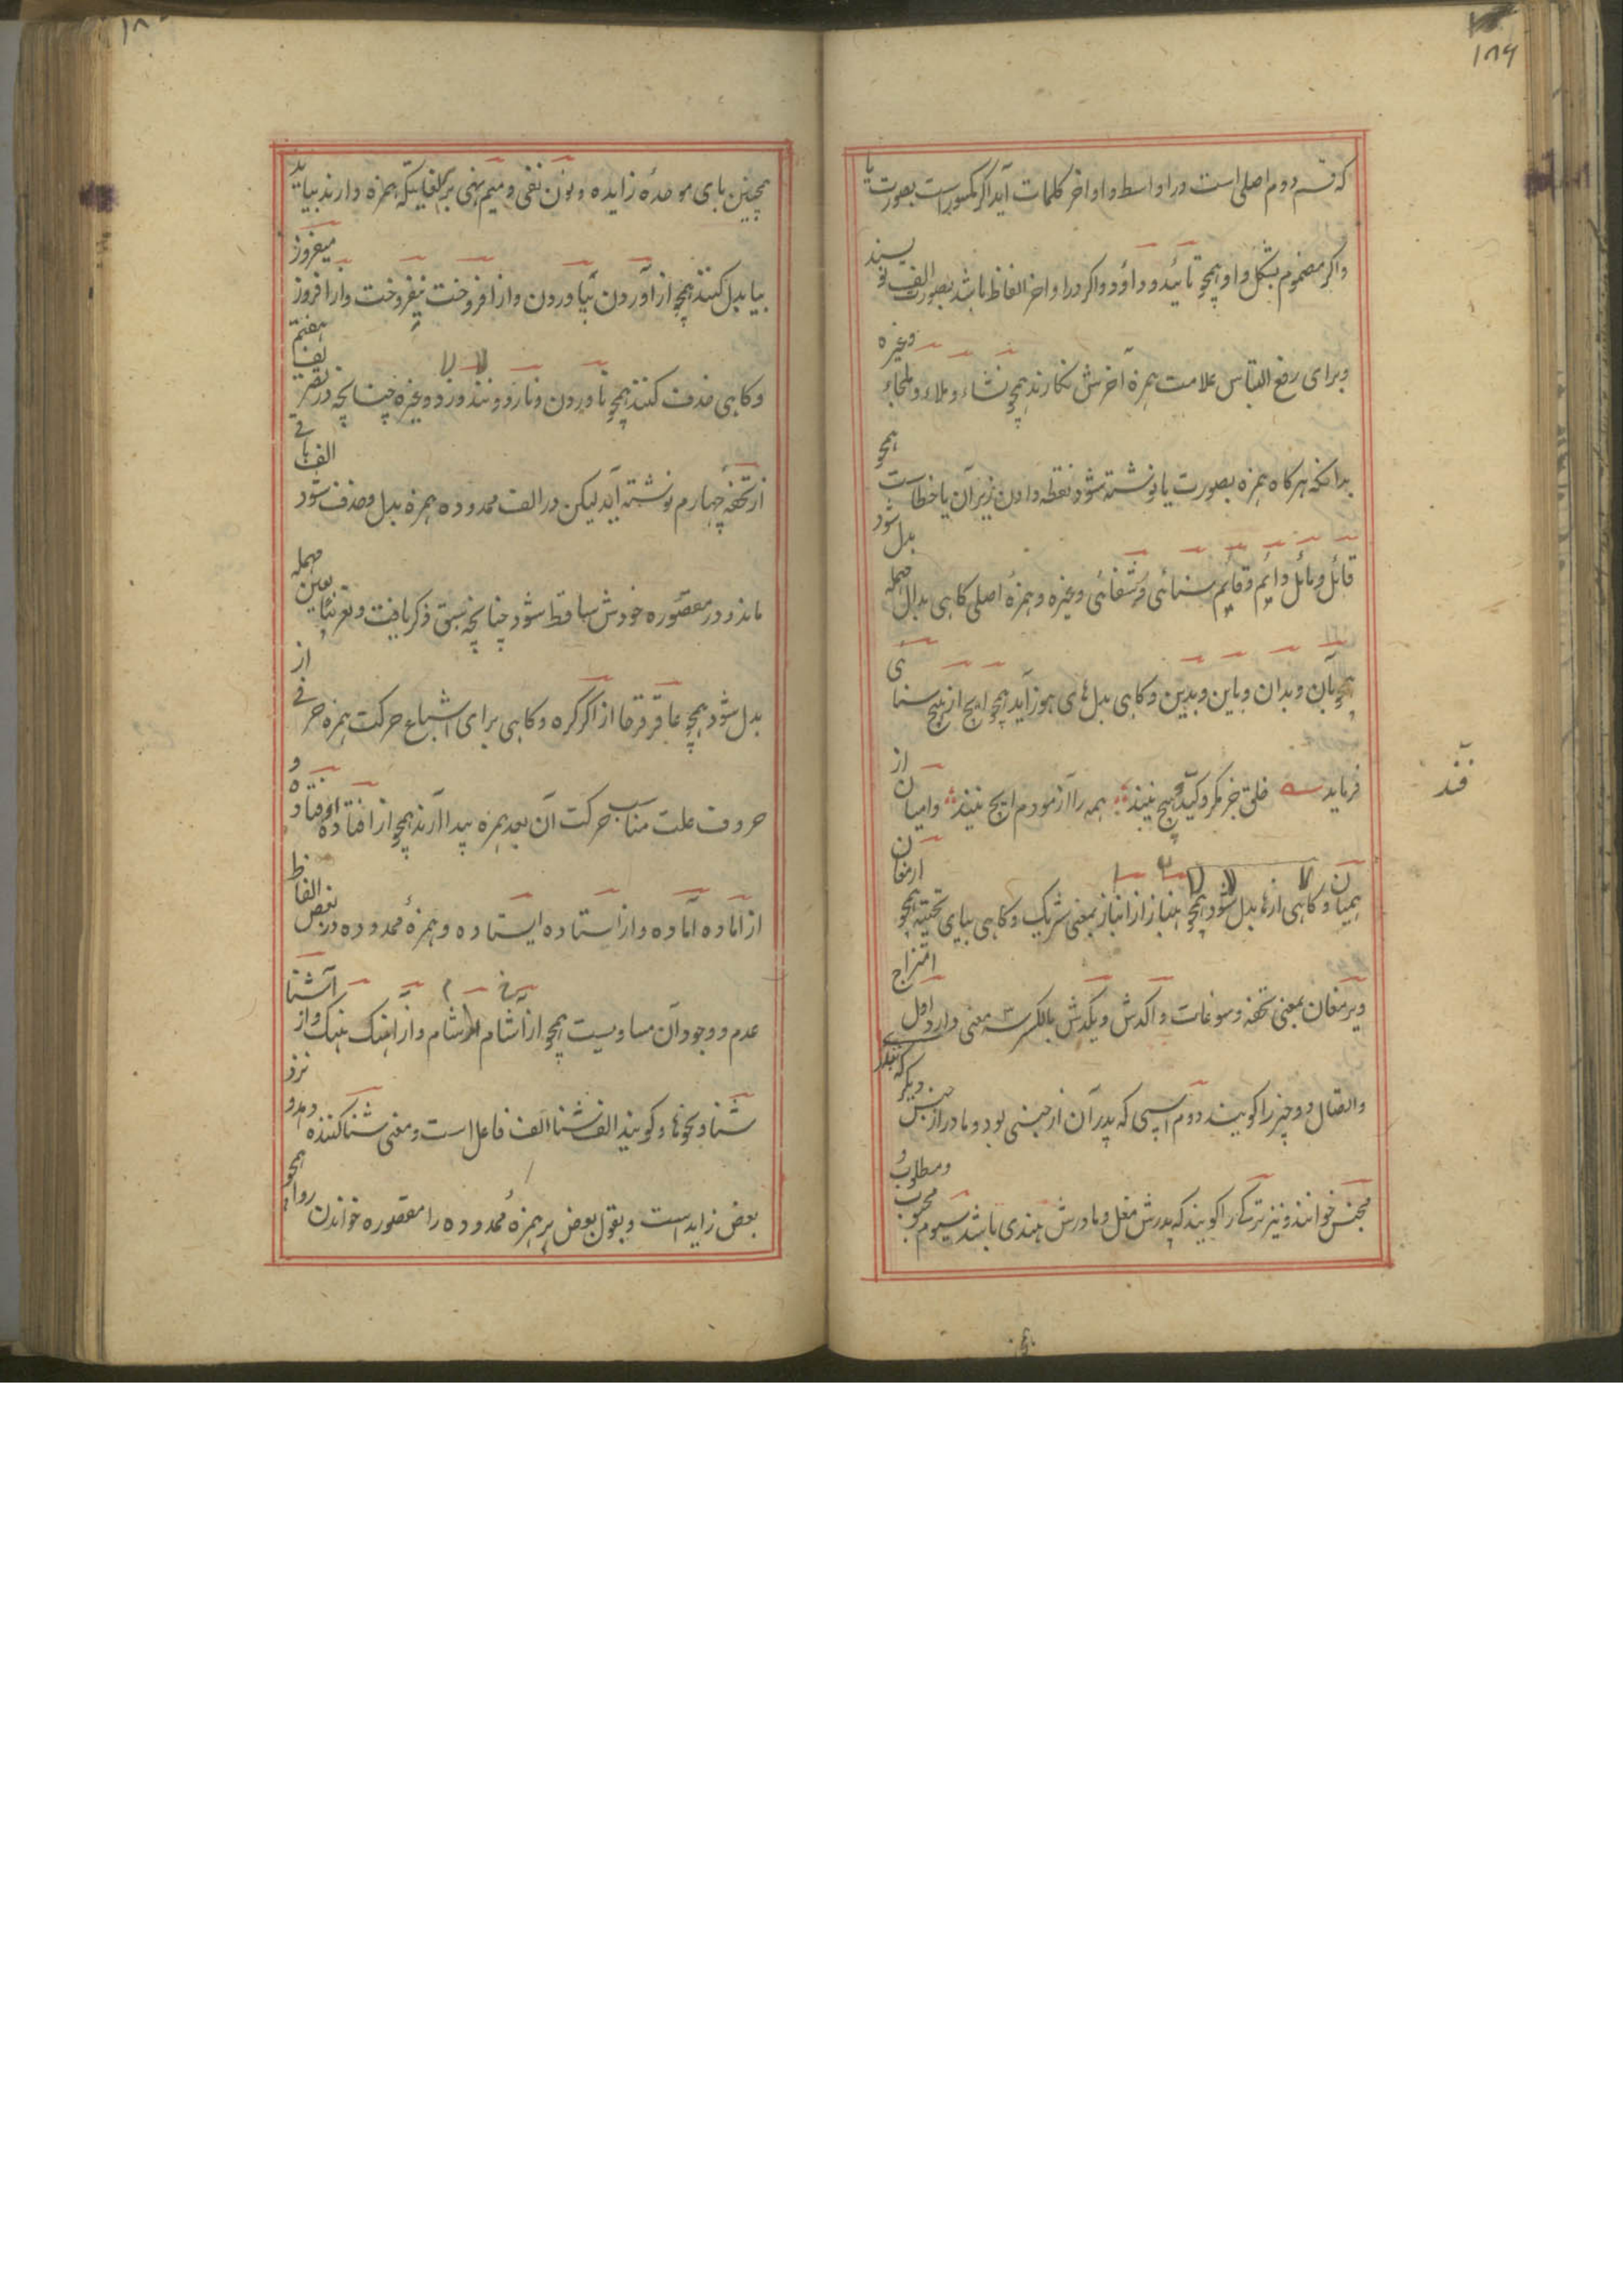 ۱۸۶
که قسم دوم اصلی است در اواسط و اواخر کلمات آید اگر مکسور است بصورت یا
و اگر مضموم بشکل واو همچو تائید و داؤد و اگر در اواخر الفاظ باشد بصورت الف نویسند
و برای رفع التباس علامت همزه آخرش نگارند همچو نشاء و ملاء و ملجاء وغیره
بدانکه هرگاه همزه بصورت یا نوشته شود نقطه دادن زیر آن یا خطاست همچو
قائل و مائل و دائم و قائم سنائی و شفائی وغیره و همزهٔ اصلی گاهی بدال مهمله بدل شود
همچو بآن و بدان و باین و بدین و گاهی بدل های هوز آید همچو ایچ از هیچ سنائی
فرماید خلق جز مکر و کید و هیچ نیند همه را آزمودم ایچ نیند و امیان از
همیان و گاهی از ها بدل شود همچو هنباز از انباز بمعنی شریک و گاهی بیای تحتیه همچو ارمغان
و یرمغان بمعنی تحفه و سوغات و اکدش و یکدش بالکسر سه معنی دارد اول امتزاج
و اتصال دو چیز را گویند دوم اسپی که پدر آن از جنسی بود و مادر از جنس دیگر که
مجنس خوانند و نیز ترکے را گویند که پدرش مغل و مادرش هندی باشد سیوم محبوب و مطلوب
قند
همچنین بای موحدهٔ زایده و نون نفی و میم نهی بر الفاظیکه همزه دارند بیاید
بیا بدل کنند همچو از آوردن بیاوردن و از افروخت نیفروخت و از افروز میفروز
و گاهی حذف کنند همچو ناوردن و نارد و وغیره چنانچه در تعریف هفتم
از تحفه چهارم نوشته آید لیکن در الف ممدوده همزه بدل و حذف شود الف باقی
ماند و در مقصوره خودش ساقط شود چنانچه سبق ذکر یافت و بعین مهمله
بدل شود همچو عاقرقرحا از اکرکره و گاهی برای اشباع حرکت همزه حرفی از
حروف علت مناسب حرکت آن بعد همزه پیدا آرند همچو از افتاده اوفتاده و
از آماده و از استاده ایستاده و همزهٔ ممدوده در بعض الفاظ
عدم و وجود آن مساویست همچو از آشام و از اهنگ هنگ و از آشنا
شنا و نحوها و گویند الف شنا الف فاعل است و معنی شنا کننده و نزد
بعض زاید است و بقول بعض هر همزهٔ ممدوده را مقصوره خواندن روا همچو